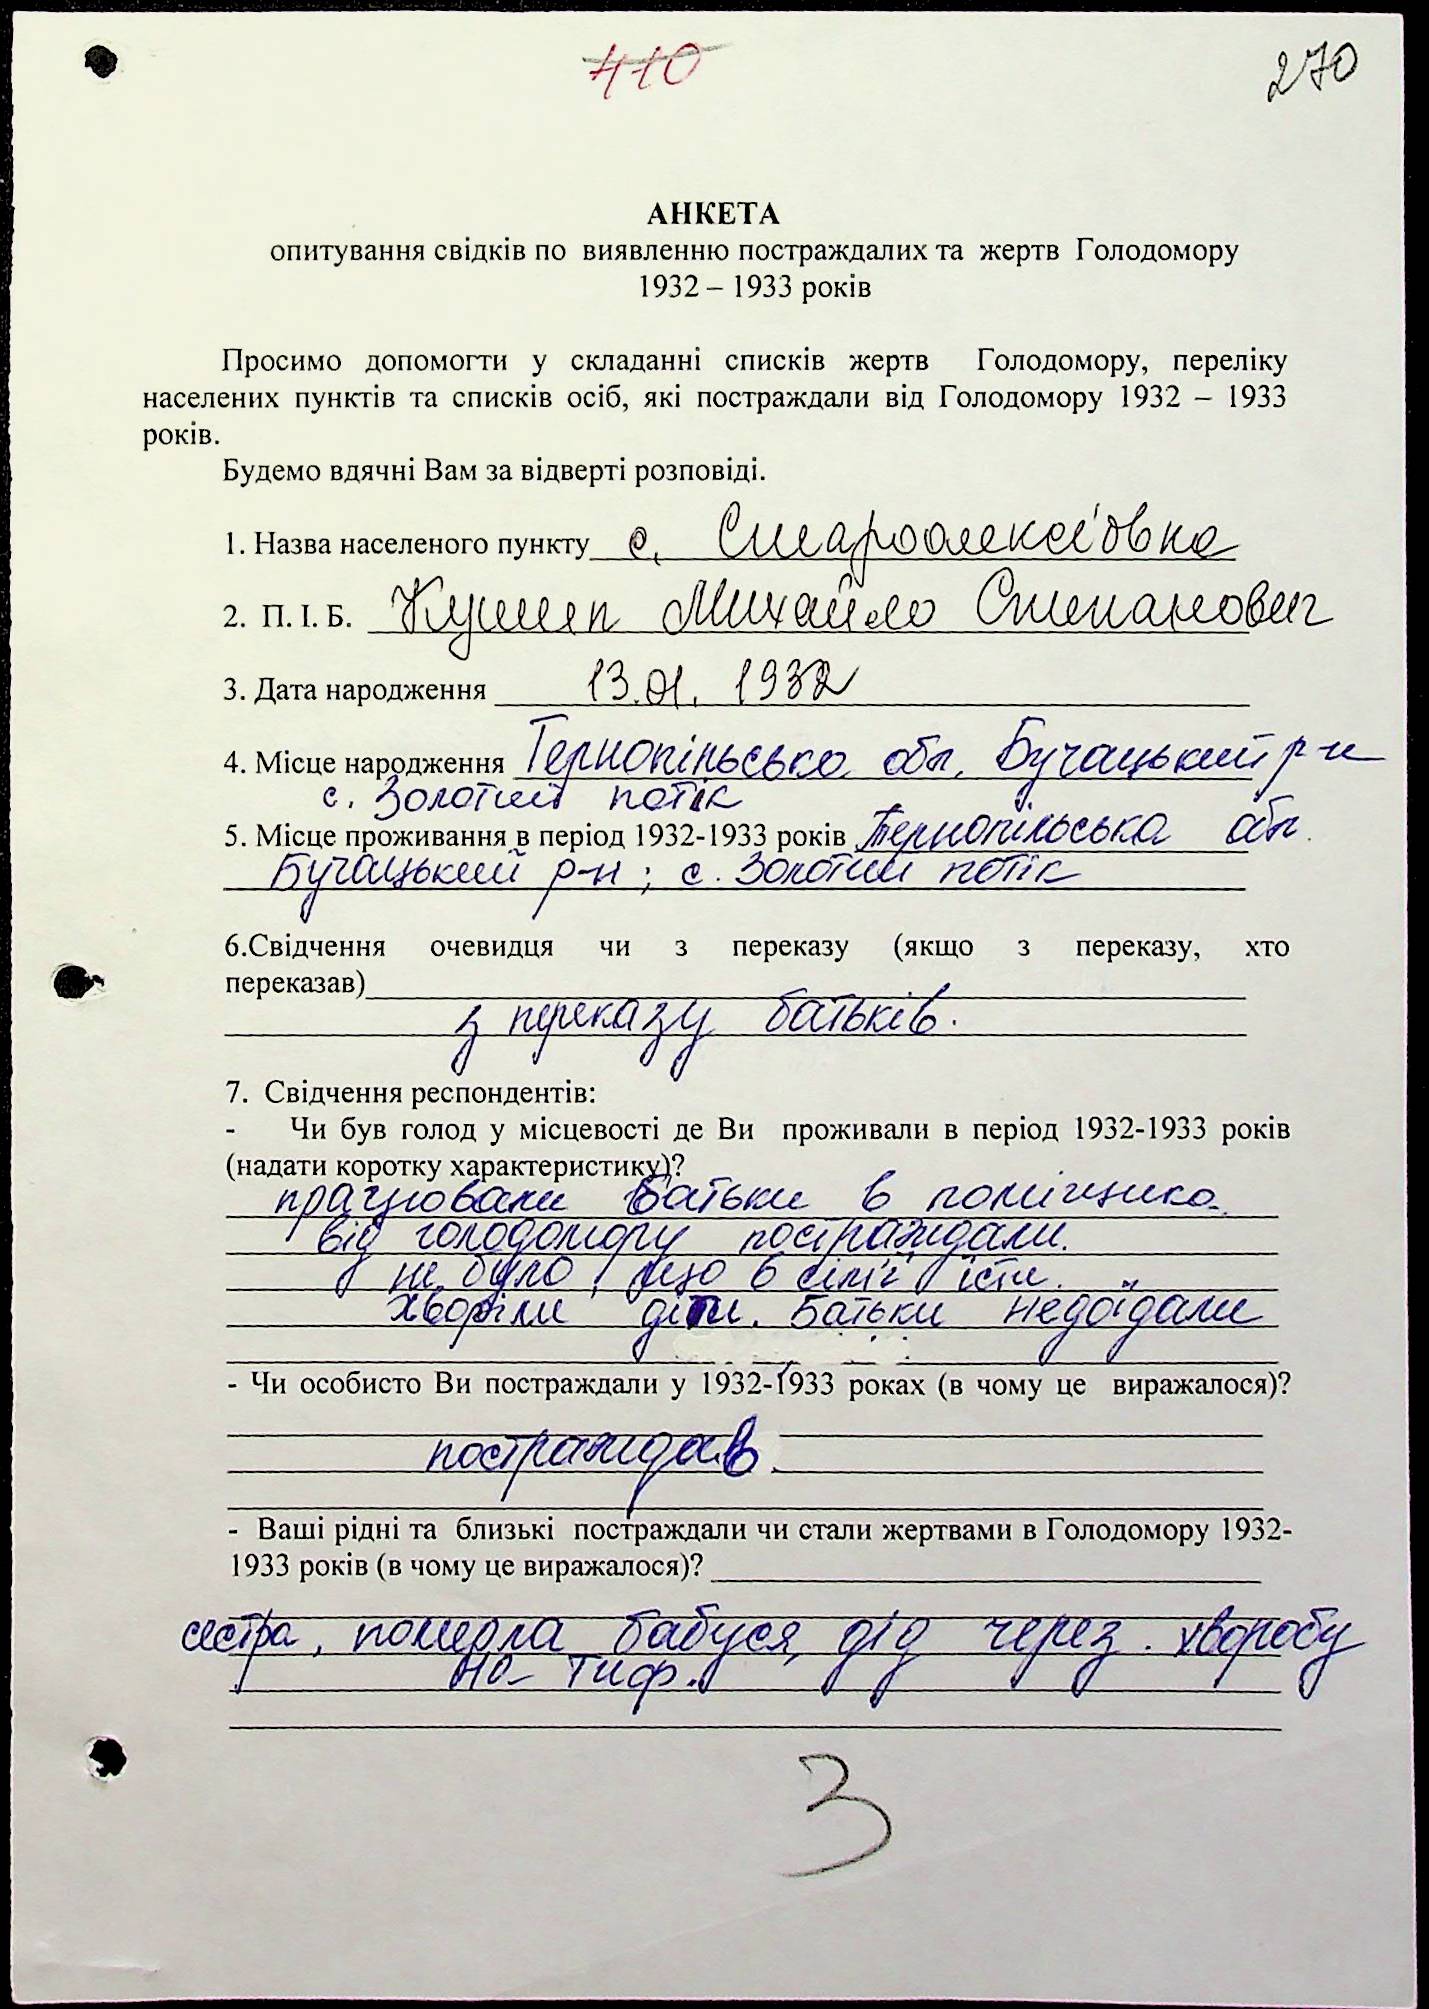 410
270
АНКЕТА
опитування свідків по виявленню постраждалих та жертв Голодомору
1932 – 1933 років
Просимо допомогти у складанні списків жертв Голодомору, переліку
населених пунктів та списків осіб, які постраждали від Голодомору 1932 – 1933
років.
Будемо вдячні Вам за відверті розповіді.
1. Назва населеного пункту с. Староолексіївка
2. П. І. Б. Михайло Степанович
3. Дата народження 13.01. 1932
4. Місце народження Тернопільська обл. Бучацький р-н
с. Золотий потік
5. Місце проживання в період 1932-1933 років Тернопільська обл.
Бучацький р-н; с. Золотий потік
6.Свідчення очевидця чи з переказу (якщо з переказу, хто
переказав)
з переказу батьків.
7. Свідчення респондентів:
- Чи був голод у місцевості де Ви проживали в період 1932-1933 років
(надати коротку характеристику)?
працювали батьки в поміщика.
від голодомору постраждали.
не було, що в сім'ї їсти.
хворіли діти. Батьки недоїдали
- Чи особисто Ви постраждали у 1932-1933 роках (в чому це виражалося)?
постраждав
- Ваші рідні та близькі постраждали чи стали жертвами в Голодомору 1932-
1933 років (в чому це виражалося)?
сестра, померла бабуся, дід через хворобу
на тиф.
3